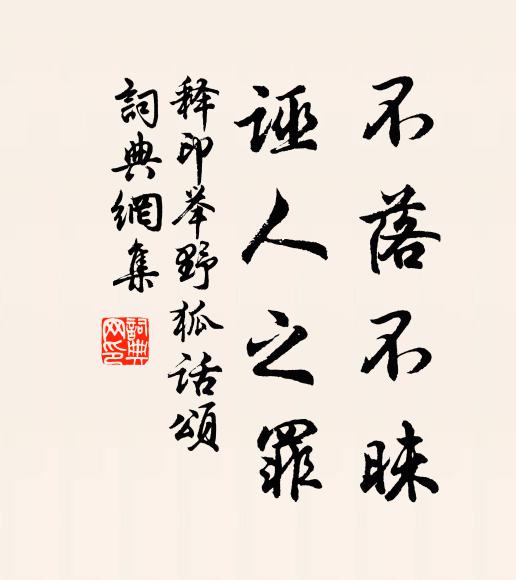 不落不昧
诬人之罪
释印举野狐话颂
詞典網集
詞典
网印